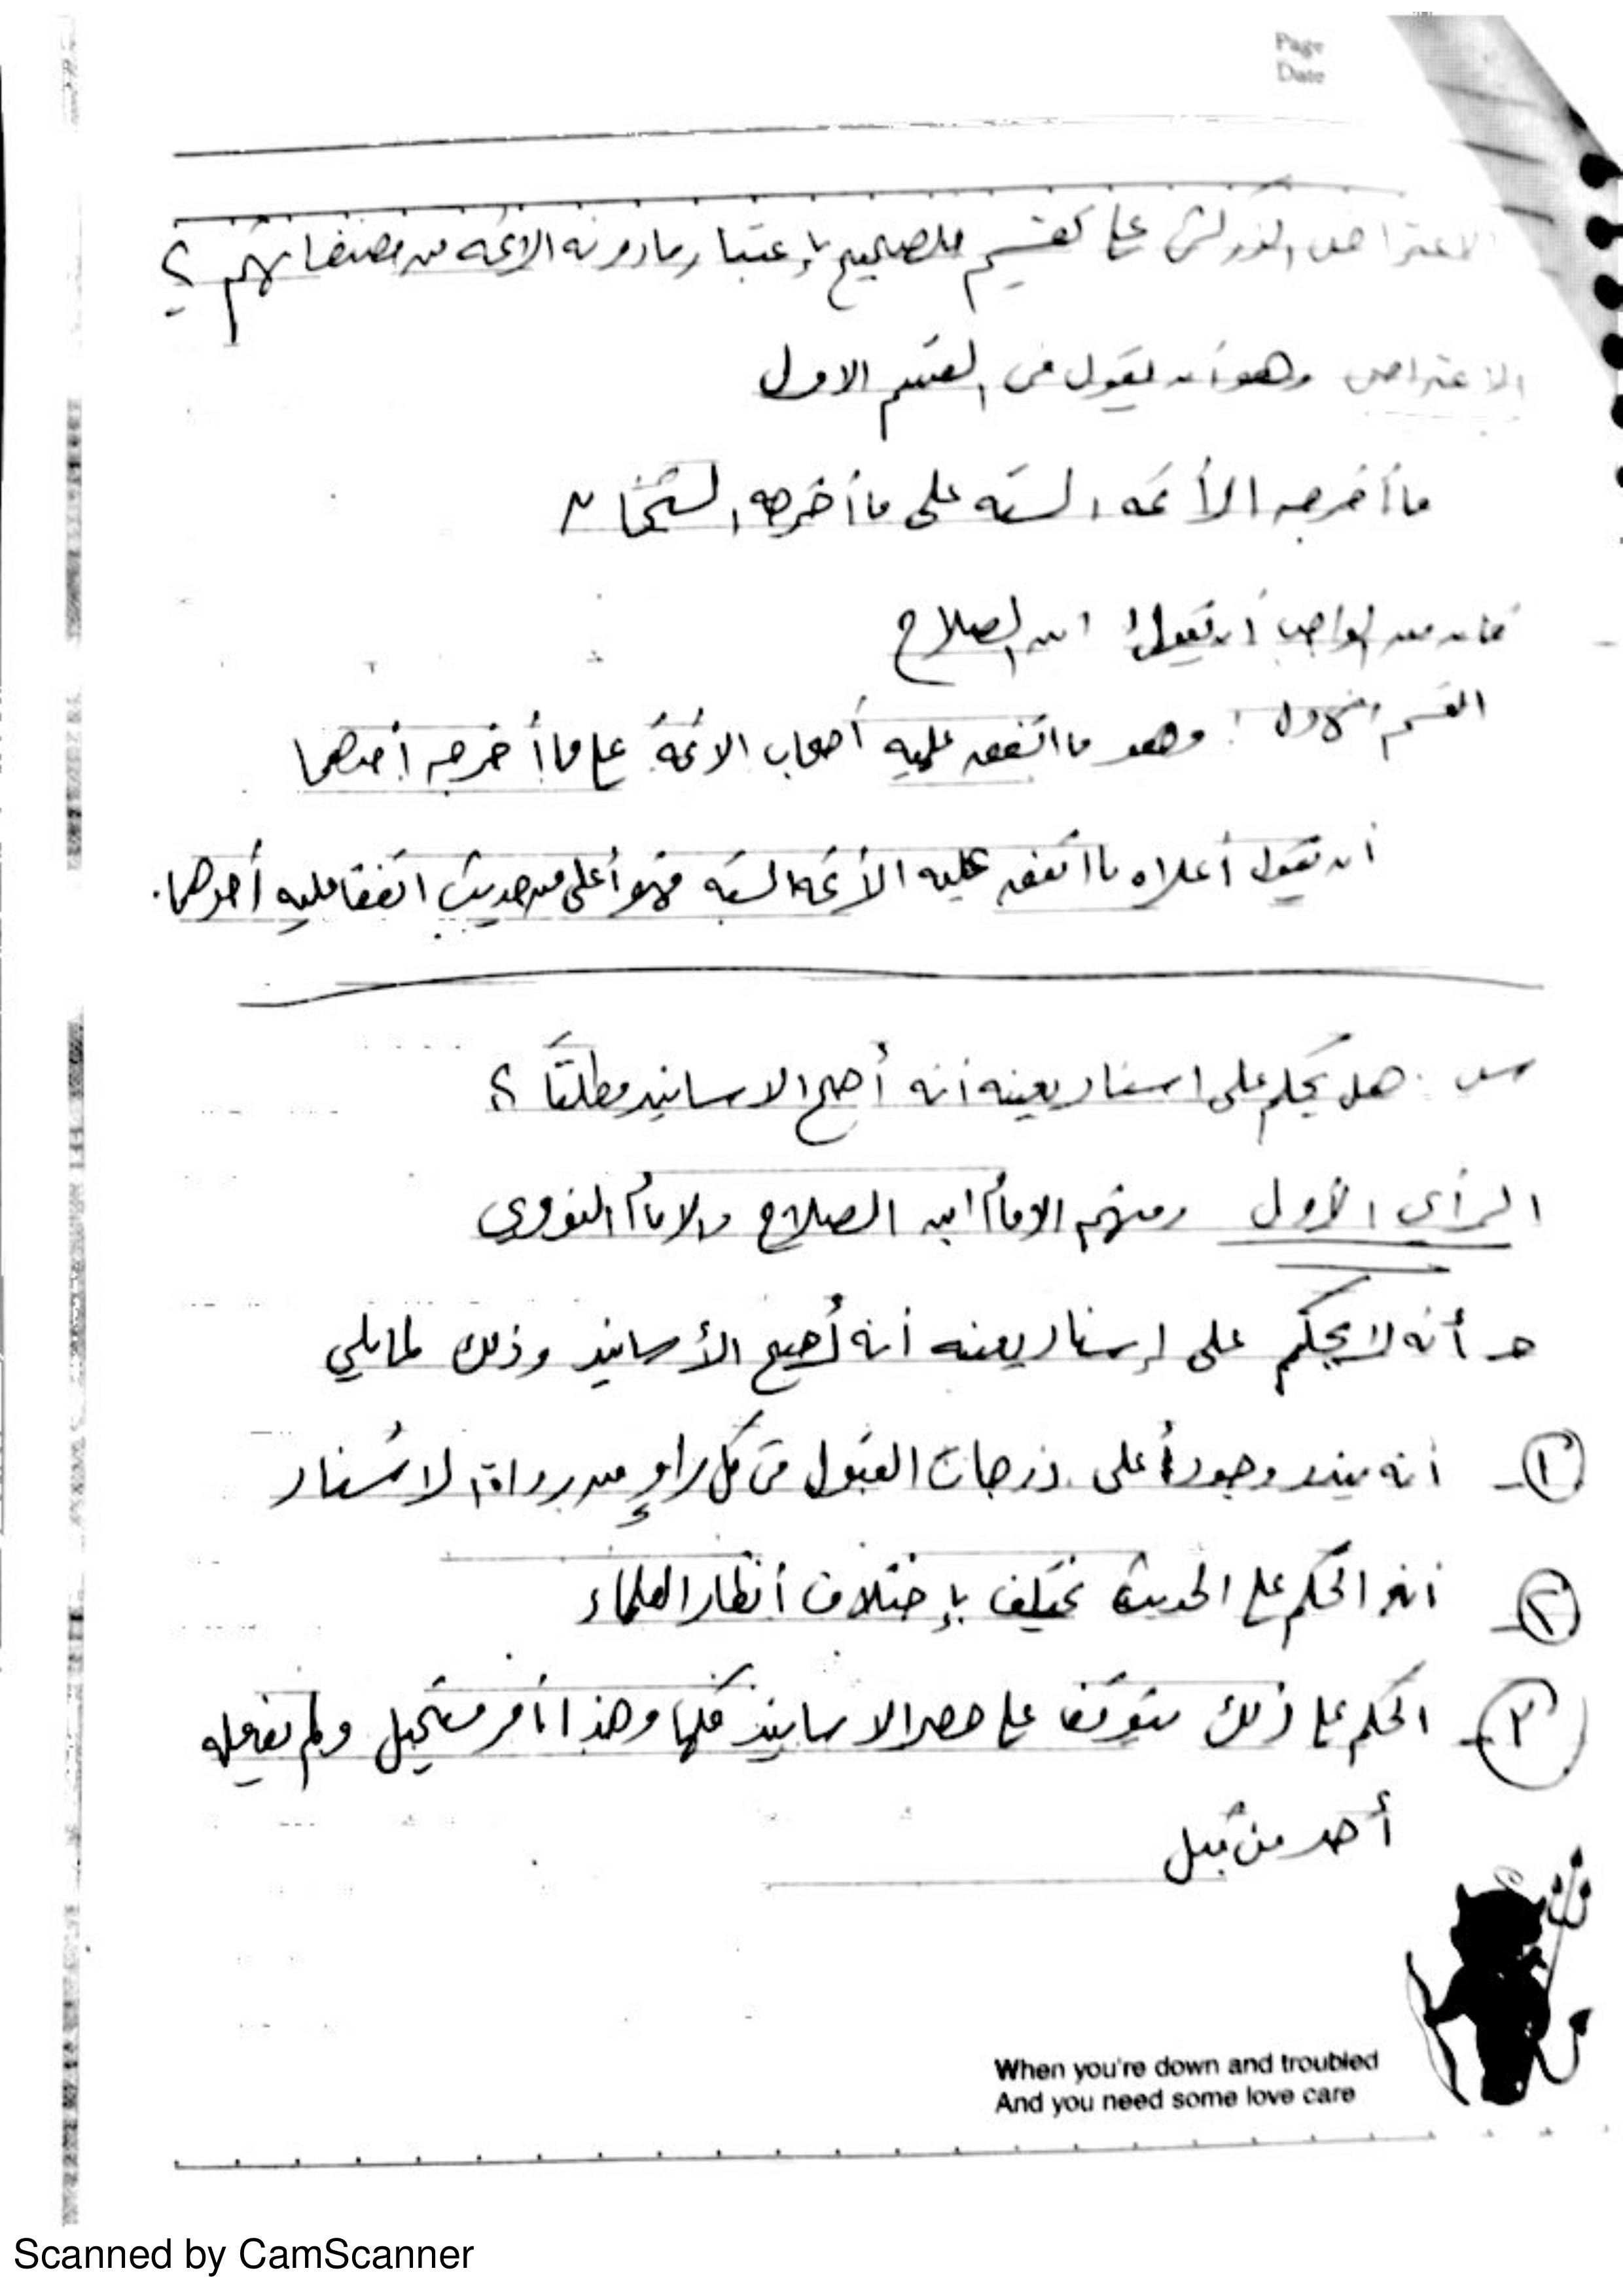 Page
Date
الاعتراض الزركشى على تقسيم للصحيح بإعتبار مادونه الائمه من مصنفاتهم ؟
الاعتراض وهو أن يقول فى القسم الاول
ما أخرجه الأئمه السته على ما أخرجه الشيخان
فان من الواجب أن يقول ابن الصلاح
القسم الاول : وهو ما اتفق عليه أصحاب الائمة على ما أخرجه أحدهما
أن يقول أعلاه ما اتفق عليه الأئمه السته فهو أعلى من حديث اتفقا عليه أحدهما.
س . هل يحكم على اسناد بعينه أنه أصح الاسانيد مطلقاً ؟
الرأى الأول ومنهم الامام ابن الصلاح والامام النووي
هـ أنه لا يحكم على إسناد بعينه أنه أصح الأسانيد وذلك لما يلي
١- أنه يندر وجود أعلى درجات القبول فى كل راوٍ من رواة الاسناد
٢- أن الحكم على الحديث يختلف بإختلاف أنظار العلماء
٣- الحكم على ذلك يتوقف على حصر الاسانيد كلها وهذا أمر مستحيل ولم يفعله
أحد من قبل
When you're down and troubled
And you need some love care
Scanned by CamScanner